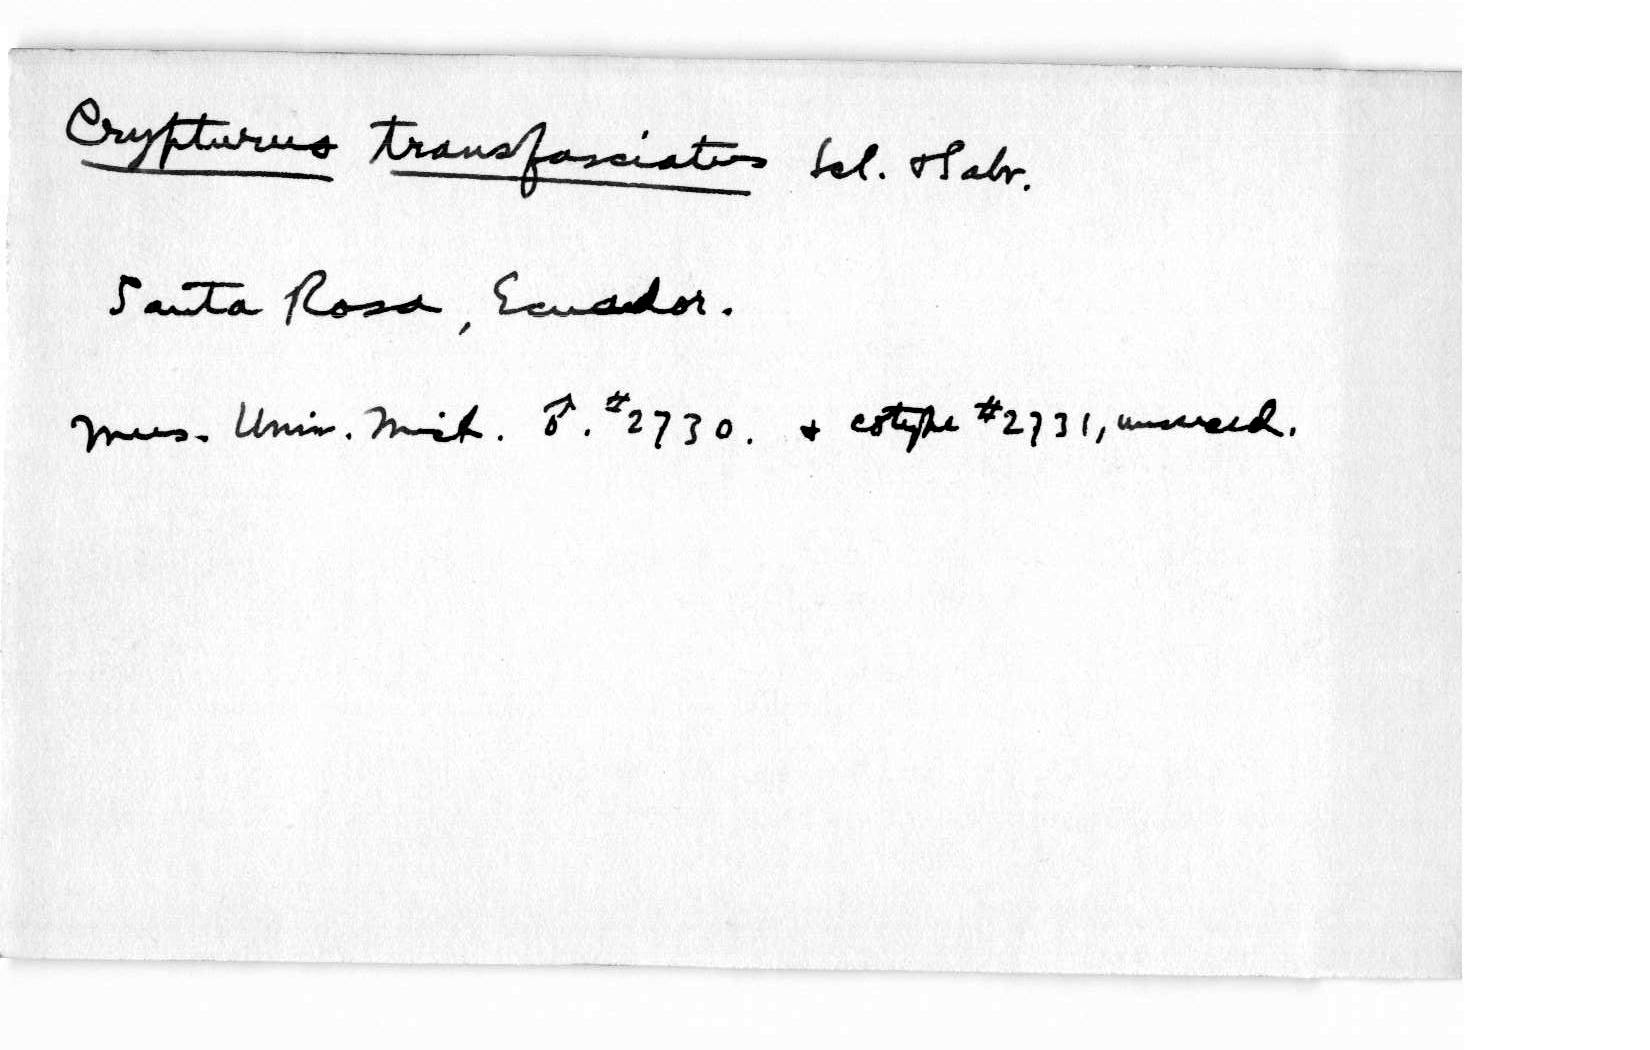 Crypturus transfasciatus Scl. & Salv.
Santa Rosa, Ecuador.
Mus. Univ. Mich. ♂. #2730. + cotype #2731, unsexed.